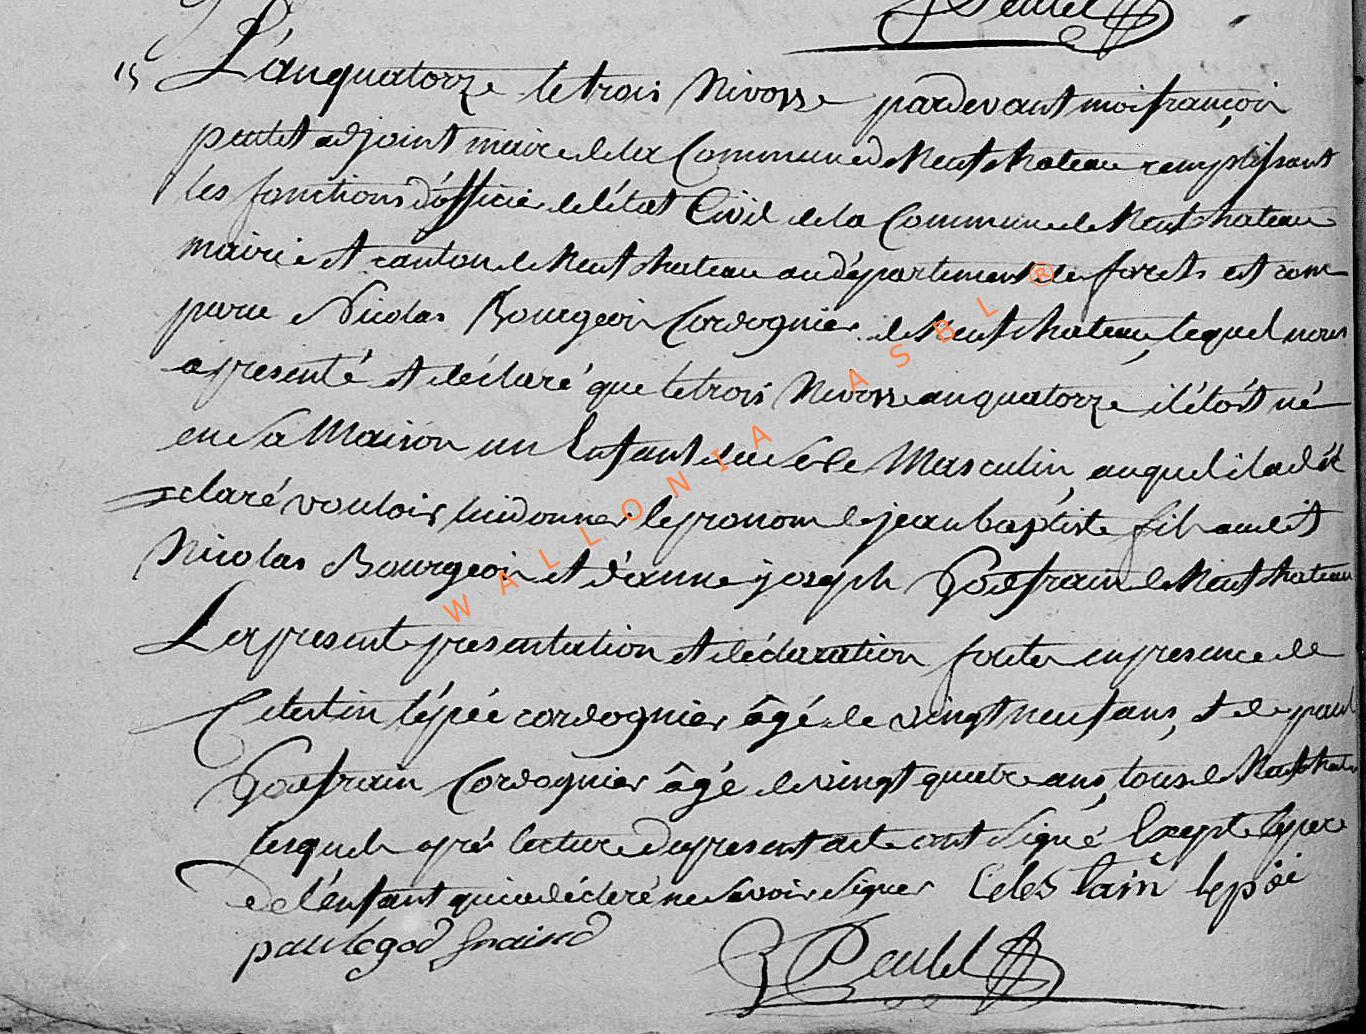 Peutet
15 L'an quatorze le trois Nivosse pardevant moi françoin
peutet adjoint maire de la Commune de Neufchateau remplissant
les fonctions d'officié de l'état Civil de la Commune de Neufchateau
mairie et canton de Neufchateau au département de forets est com
parue Nicolas Bourgeoin Cordognier de Neufchateau, lequel nous
a presenté et déclaré que le trois Nivosse an quatorze il étoit né
en sa Maison un Enfant du sexe Masculin, auquel il a dé
claré vouloir lui donner le pronom de jean baptiste fils audit
Nicolas Bourgeoin et d'anne joseph Godfrain de Neufchateau
La presente presentation et déclaration faite en presence de
Celestin lépée cordognier âgé de vingt neuf ans, et de paul
Godfrain Cordognier âgé de vingt quatre ans, tous de Neufchateau
lesquels aprés lecture du present acte ont signé Except le pere
de l'enfant qui a déclaré ne savoir signer Celes tain lepéé
paul godfraind Peutet
WALLONIA ASBL ®